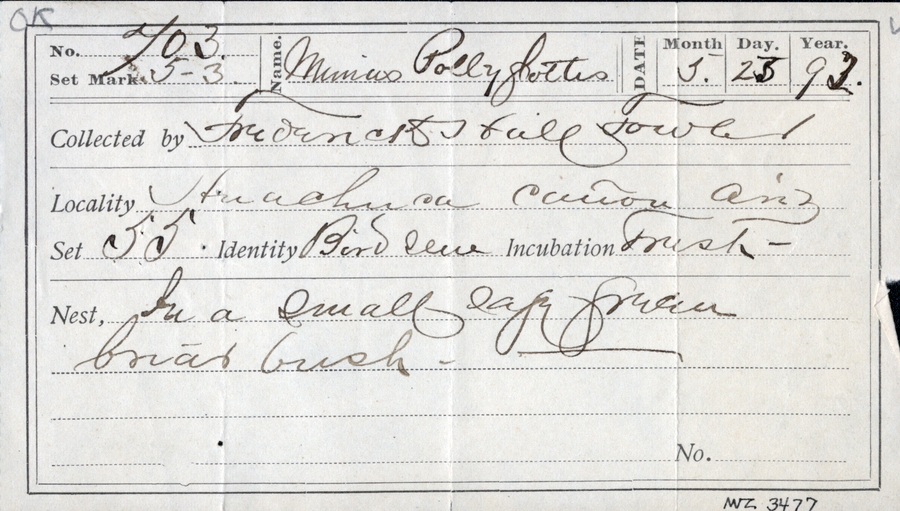 OK
No. 703 Name. Mimus Pollyglottus DATE Month Day. Year.
Set Mark. 5-3. 5. 23 93.
Collected by Frederick Hall Fowler
Locality Huachuca cañon Ariz
Set 55. Identity Bird seen Incubation Fresh -
Nest, In a small green
briar bush -
No.
MVZ 3477